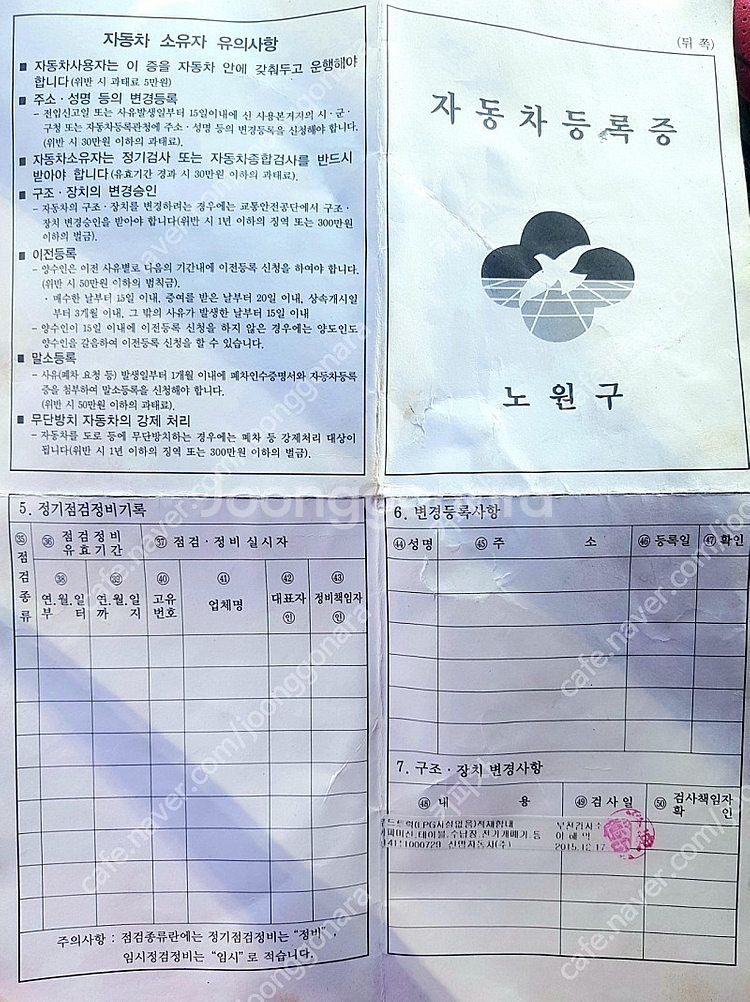 자동차 소유자 유의사항
■ 자동차사용자는 이 증을 자동차 안에 갖춰두고 운행해야
합니다(위반 시 과태료 5만원)
■ 주소·성명 등의 변경등록
- 전입신고일 또는 사유발생일부터 15일이내에 신 사용본거지의 시·군·
구청 또는 자동차등록관청에 주소·성명 등의 변경등록을 신청해야 합니다.
(위반 시 30만원 이하의 과태료).
■ 자동차소유자는 정기검사 또는 자동차종합검사를 반드시
받아야 합니다(유효기간 경과 시 30만원 이하의 과태료).
■ 구조·장치의 변경승인
- 자동차의 구조·장치를 변경하려는 경우에는 교통안전공단에서 구조·
장치 변경승인을 받아야 합니다(위반 시 1년 이하의 징역 또는 300만원
이하의 벌금).
■ 이전등록
- 양수인은 이전 사유별로 다음의 기간내에 이전등록 신청을 하여야 합니다.
(위반 시 50만원 이하의 범칙금).
· 매수한 날부터 15일 이내, 증여를 받은 날부터 20일 이내, 상속개시일
부터 3개월 이내, 그 밖의 사유가 발생한 날부터 15일 이내
- 양수인이 15일 이내에 이전등록 신청을 하지 않은 경우에는 양도인도
양수인을 갈음하여 이전등록 신청을 할 수 있습니다.
■ 말소등록
- 사유(폐차 요청 등) 발생일부터 1개월 이내에 폐차인수증명서와 자동차등록
증을 첨부하여 말소등록을 신청해야 합니다.
(위반 시 50만원 이하의 과태료).
■ 무단방치 자동차의 강제 처리
- 자동차를 도로 등에 무단방치하는 경우에는 폐차 등 강제처리 대상이
됩니다(위반 시 1년 이하의 징역 또는 300만원 이하의 벌금).
(뒤 쪽)
자동차등록증
노원구
5. 정기점검정비기록
㉟ 점검종류
㊱ 점검정비
유효기간
㊲ 점검·정비 실시자
㊳ 연.월.일
부터
연.월.일
까지
㊵ 고유
번호
㊶ 업체명
㊷ 대표자
㊞
㊸ 정비책임자
㊞
주의사항 : 점검종류란에는 정기점검정비는 "정비",
임시점검정비는 "임시"로 적습니다.
6. 변경등록사항
㊹ 성명 ㊺ 주 소 ㊻ 등록일 ㊼ 확인
7. 구조·장치 변경사항
㊽ 내 용 ㊾ 검사일 ㊿ 검사책임자
확 인
(LPG시설없음)적재함내
테이블,수납장,전기개폐기,등
1000729 신명자동차(주)
2015.12.17
Joonggonara
cafe.naver.com/joonggonara